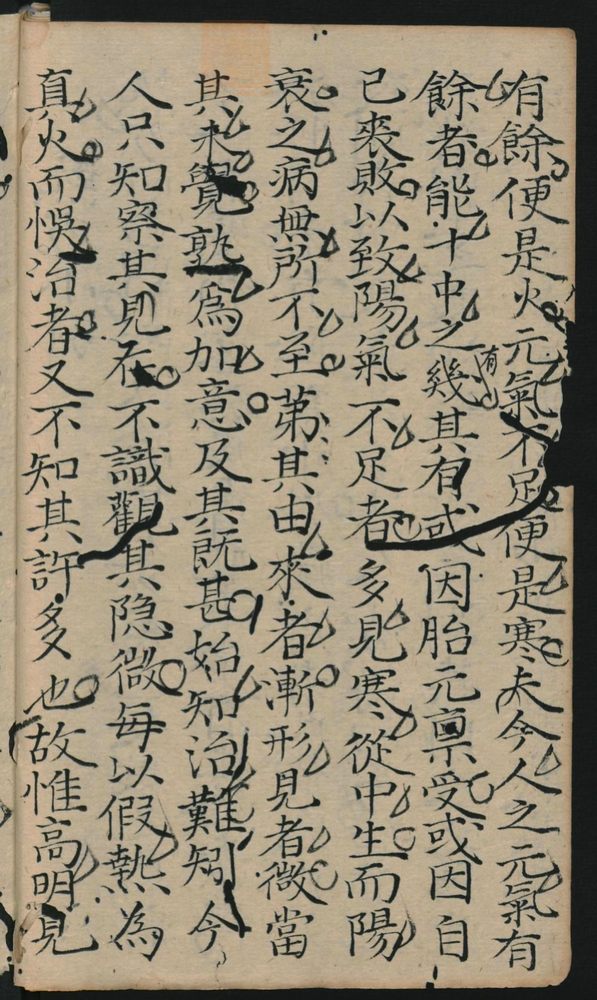 有餘便是火元氣不足便是寒夫今人之元氣有
餘者能十中之幾其有或因胎元禀受或因自
有
已喪敗以致陽氣不足者多見寒從中生而陽
衰之病無所不至第其由來者漸形見者微當
其未覺孰為加意及其既甚始知治難矧今
人只知察其見在不識觀其隐微每以假熱為
真火而悞治者又不知其許多也故惟高明見